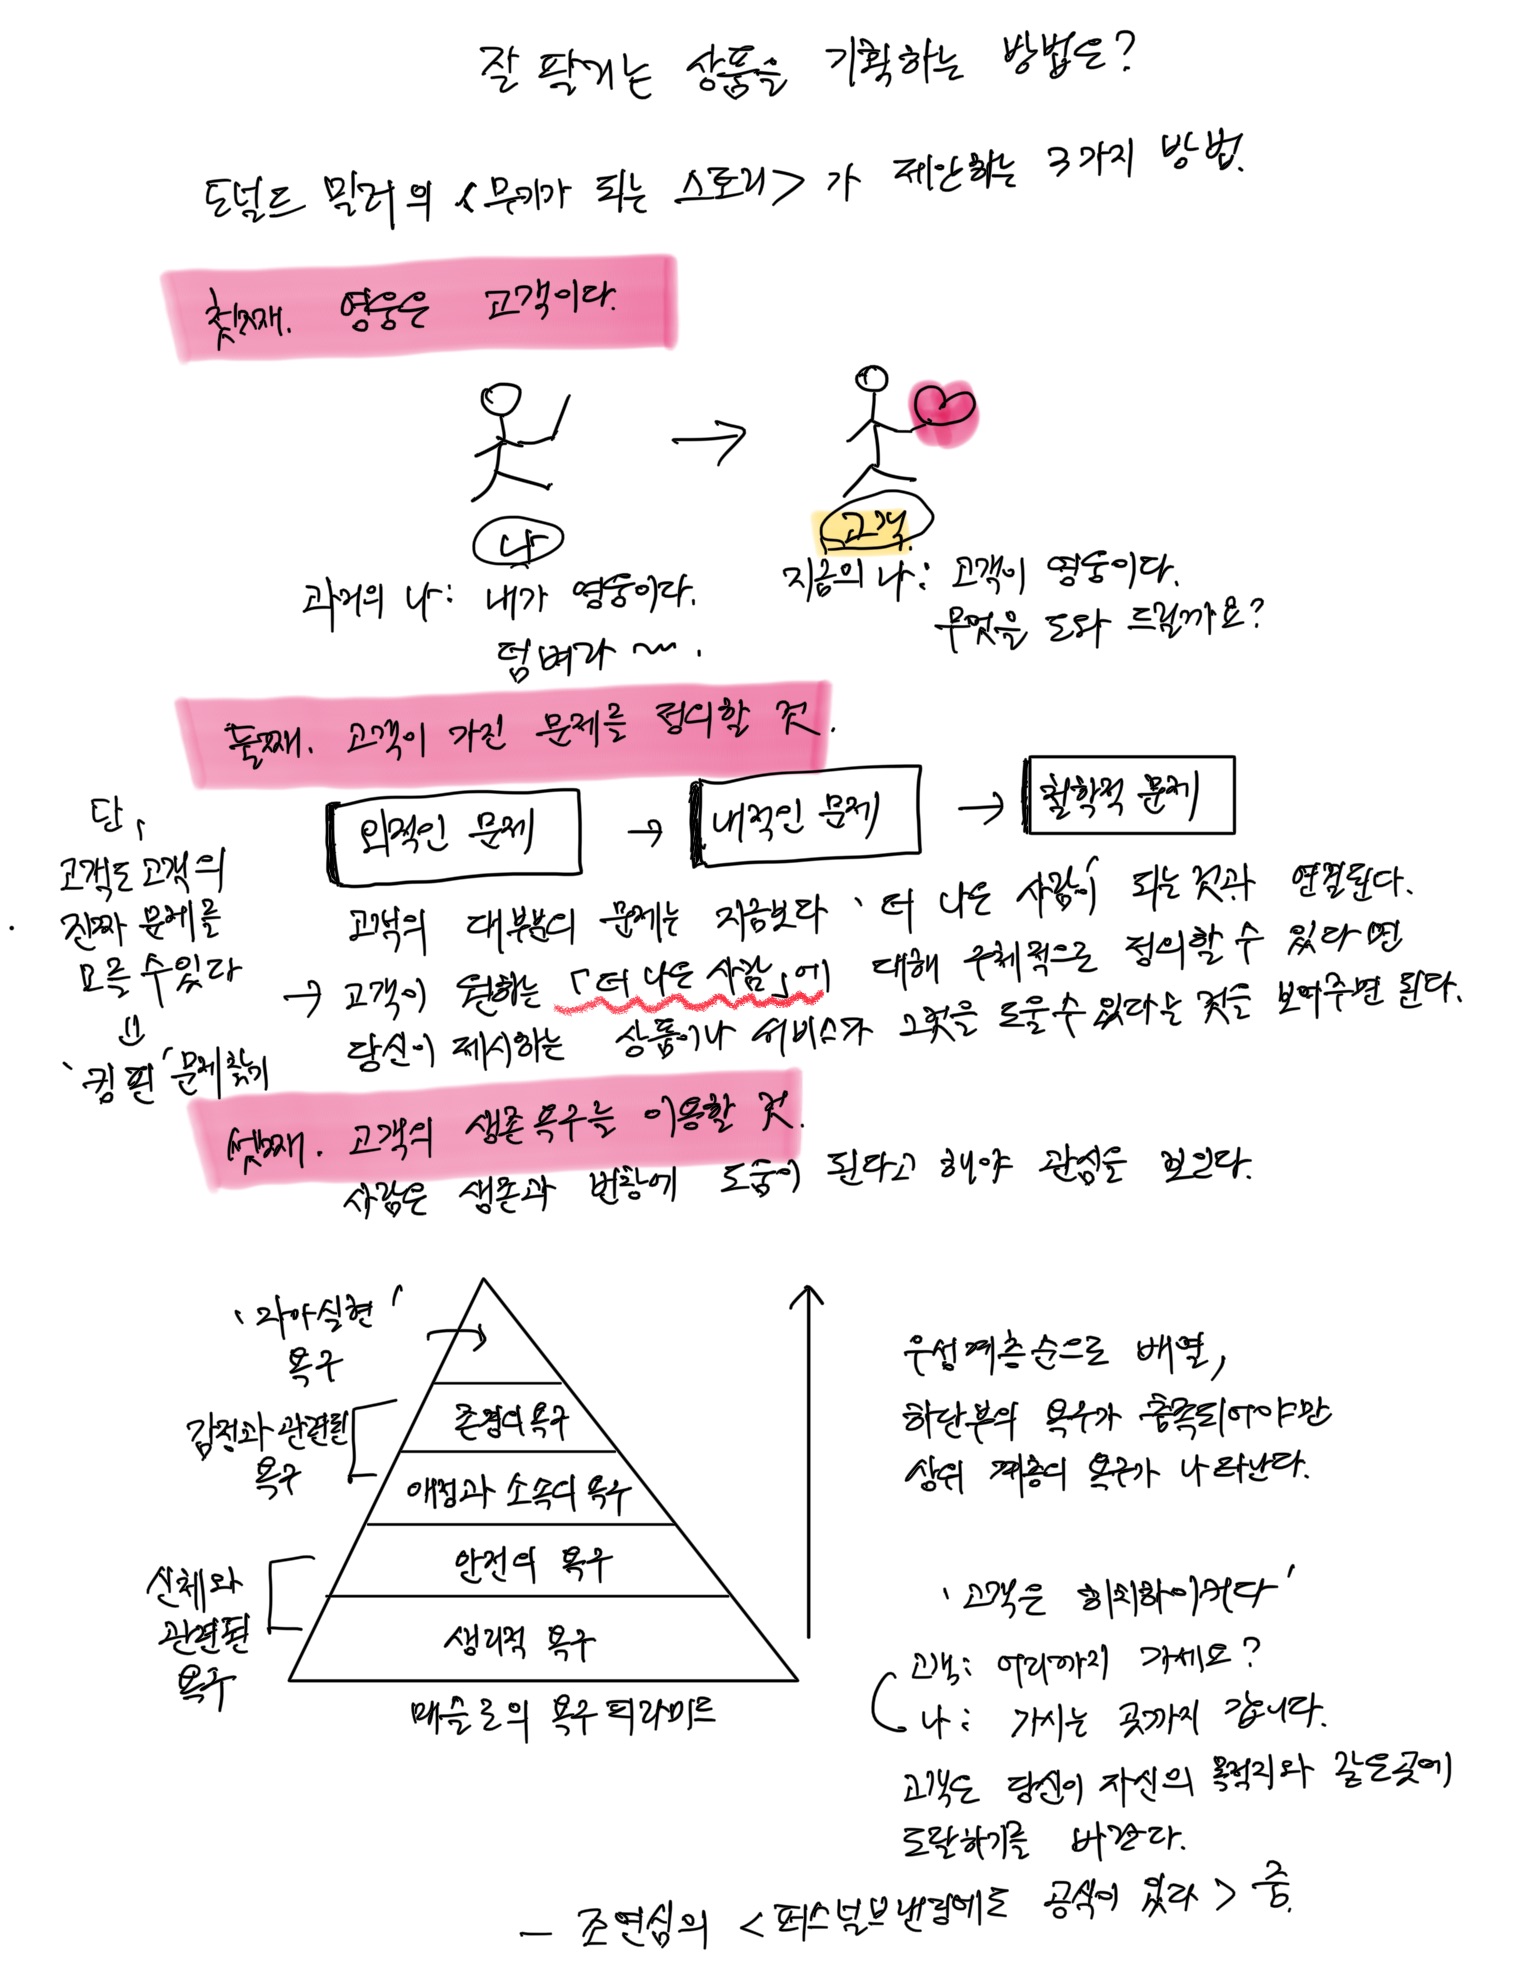 잘 팔리는 상품을 기획하는 방법은?
도널드 밀러의 <무기가 되는 스토리>가 제안하는 3가지 방법.
첫째. 영웅은 고객이다.
나
고객.
과거의 나: 내가 영웅이다.
덤벼라 ~.
지금의 나: 고객이 영웅이다.
무엇을 도와 드릴까요?
둘째. 고객이 가진 문제를 정의할 것.
외적인 문제 → 내적인 문제 → 철학적 문제
단,
고객도 고객의
진짜 문제를
모를 수 있다
'킹핀' 문제 찾기
고객의 대부분의 문제는 지금보다 '더 나은 사람'이 되는 것과 연결된다.
→ 고객이 원하는 「더 나은 사람」에 대해 구체적으로 정의할 수 있다면
당신이 제시하는 상품이나 서비스가 그것을 도울 수 있다는 것을 보여주면 된다.
셋째. 고객의 생존 욕구를 이용할 것.
사람은 생존과 번창에 도움이 된다고 해야 관심을 보인다.
'자아실현'
욕구
감정과 관련된
욕구
신체와
관련된
욕구
존경의 욕구
애정과 소속의 욕구
안전의 욕구
생리적 욕구
매슬로의 욕구 피라미드
우성 계층 순으로 배열,
하단부의 욕구가 충족되어야만
상위 계층의 욕구가 나타난다.
'고객은 히치하이커다'
고객: 어디까지 가세요?
나: 가시는 곳까지 갑니다.
고객은 당신이 자신의 목적지와 같은 곳에
도달하기를 바란다.
- 조연심의 <퍼스널브랜딩에도 공식이 있다> 중.